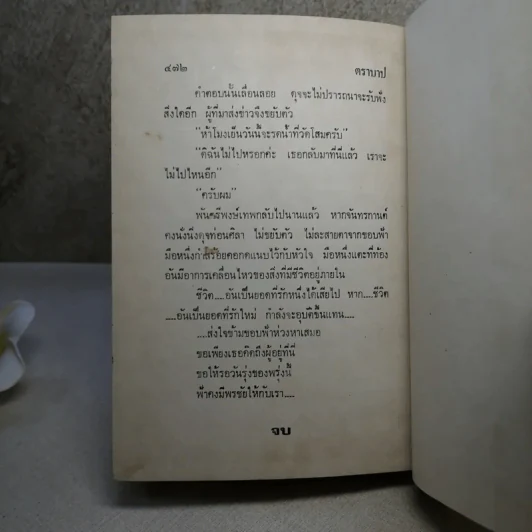 ๔๗๒ ตราบาป
คำตอบนั้นเลื่อนลอย ดุจจะไม่ปรารถนาจะรับฟัง
สิ่งใดอีก ผู้ที่มาส่งข่าวจึงขยับตัว
"ห้าโมงเย็นวันนี้จะรดน้ำที่วัดโสมครับ"
"ดิฉันไม่ไปหรอกค่ะ เธอกลับมาที่นี่แล้ว เราจะ
ไม่ไปไหนอีก"
"ครับผม"
พันตรีพงษ์เทพกลับไปนานแล้ว หากจันทรกานต์
คงนั่งนิ่งดุจท่อนศิลา ไม่ขยับตัว ไม่ละสายตาจากขอบฟ้า
มือหนึ่งกำสร้อยคอกดแนบไว้กับหัวใจ มือหนึ่งแตะที่ท้อง
อันมีอาการเคลื่อนไหวของสิ่งที่มีชีวิตอยู่ภายใน
ชีวิต....อันเป็นยอดที่รักหนึ่งได้เสียไป หาก....ชีวิต
....อันเป็นยอดที่รักใหม่ กำลังจะอุบัติขึ้นแทน....
....ส่งใจข้ามขอบฟ้าห่วงหาเสมอ
ขอเพียงเธอคิดถึงผู้อยู่ที่นี่
ขอให้รอวันรุ่งของพรุ่งนี้
ฟ้าคงมีพรชัยให้กับเรา....
จบ